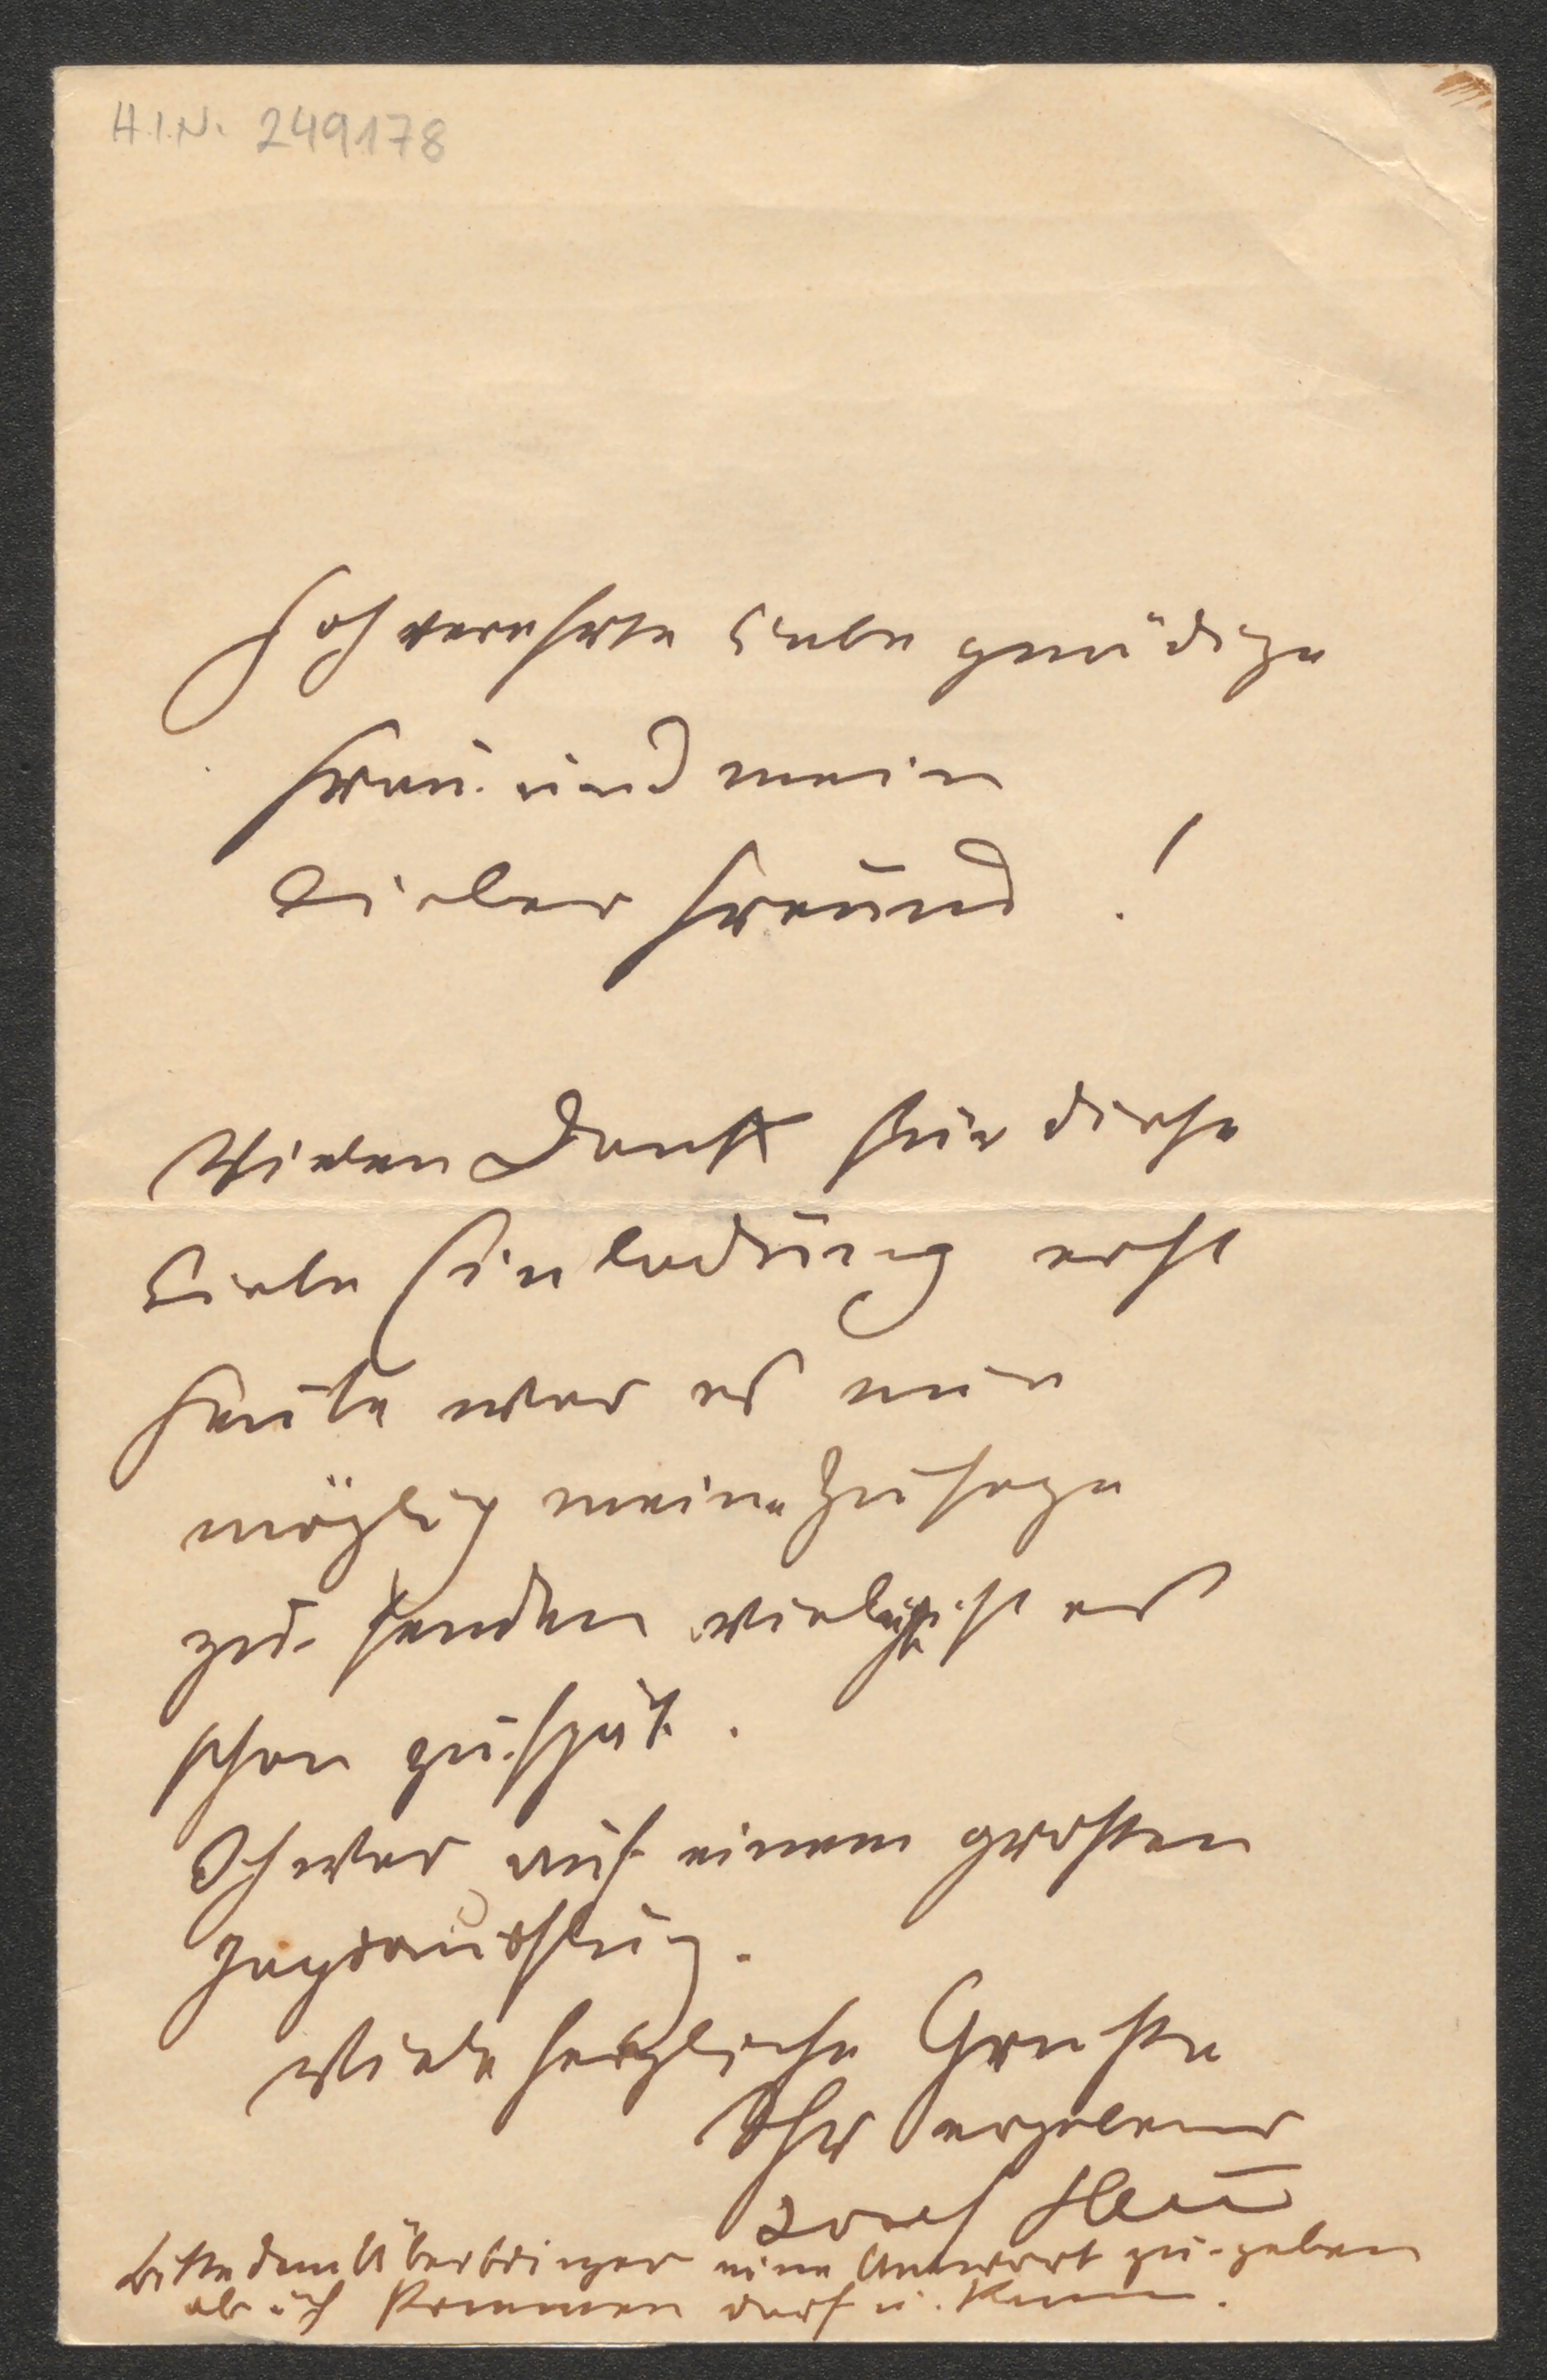 H.I.N. 249178
Hochverehrte liebe gnädige
Frau und mein
Lieber Freund !
Vielen Dank für diese
Liebe Einladung erst
heute war es mir
möglich meine Zusage
zu senden vieleicht ist es
schon zu spät.
Ich war auf einem grossen
Jagdausflug.
Viele herzliche Grüsse
Ihr ergebener
Josef
Bitte dem Überbringer eine Antwort zu geben
ob ich kommen darf u. kann.